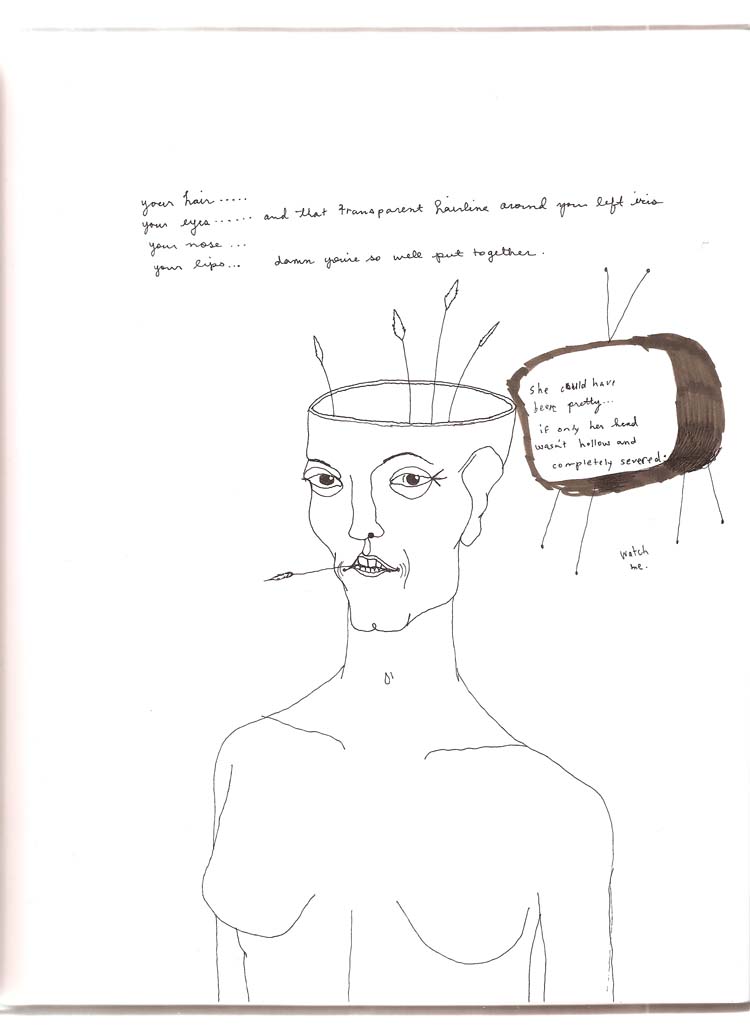 your hair .....
your eyes ...... and that transparent hairline around your left iris
your nose ...
your lips... damn you're so well put together.
She could have
been pretty...
if only her head
wasn't hollow and
completely severed.
Watch
me.